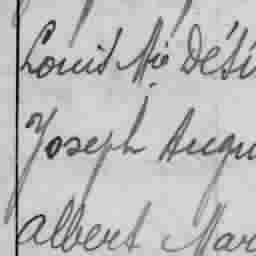 Louis Mie Dési
Joseph Augu
Albert Mar